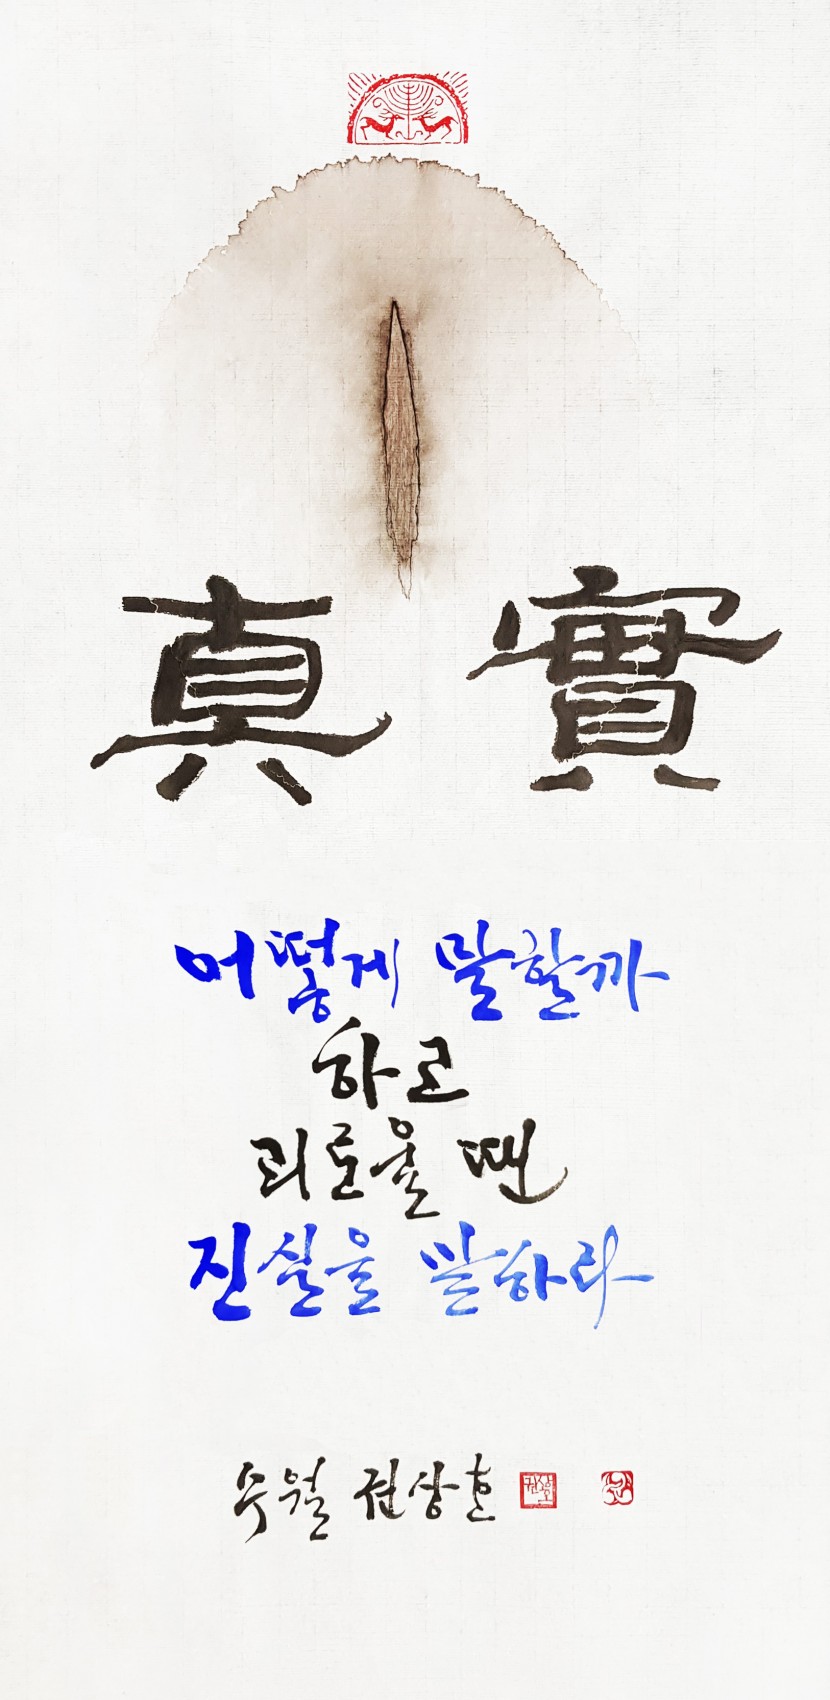 真實
어떻게 말할까
하고
괴로울 땐
진실을 말하라
수월 권상호